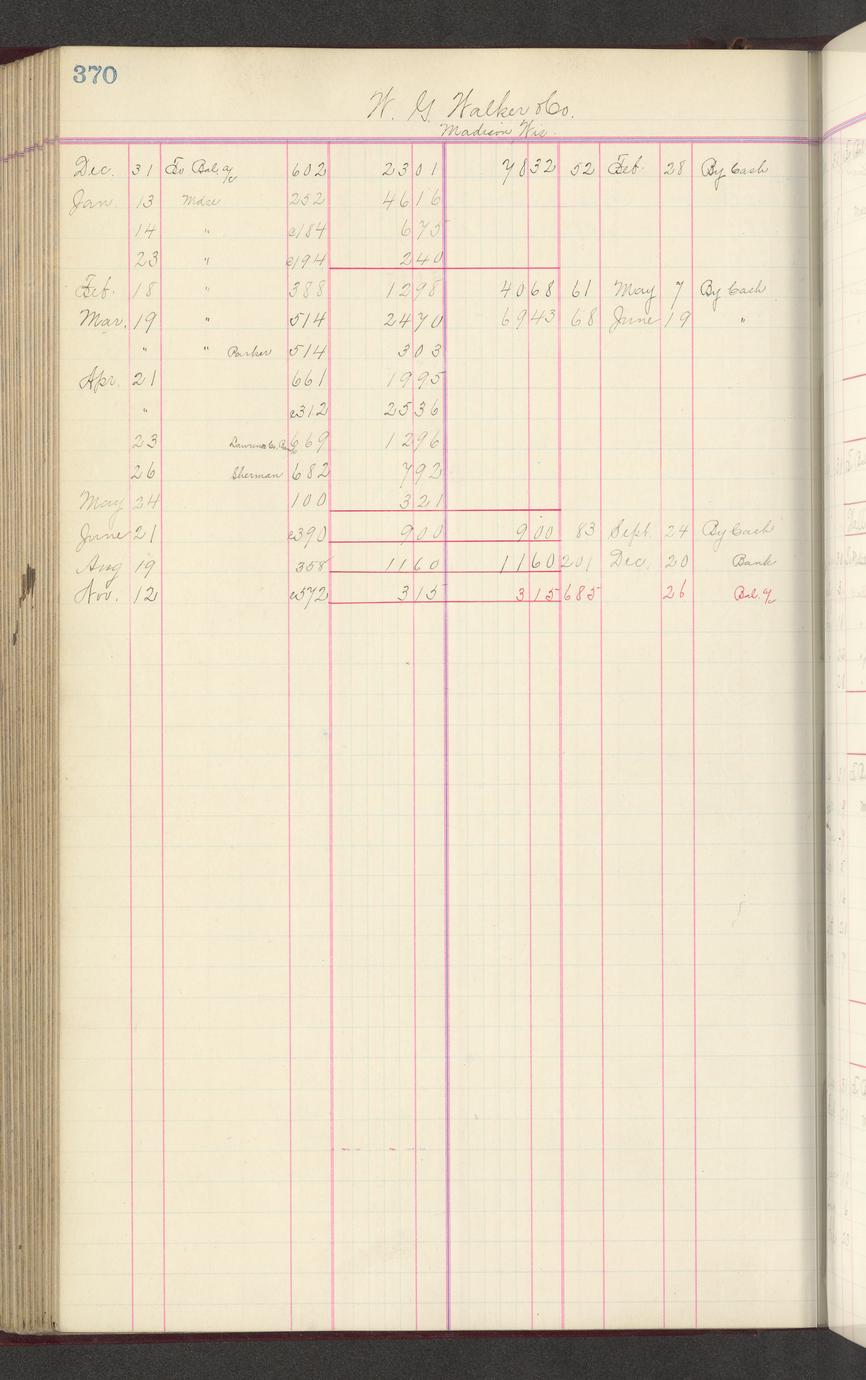 370
W. G. Walker & Co.
Madison Wis.
Dec. 31 To Bal. a/c 602 2301 7832 52 Feb. 28 By Cash
Jan. 13 Mdse 252 4616
14 " c184 675
23 " c194 240
Feb. 18 " 388 1298 4068 61 May 7 By Cash
Mar. 19 " 514 2470 6943 68 June 19 "
" " Parker 514 303
Apr. 21 661 1995
" c312 2536
23 669 1296
26 Sherman 682 792
May 24 100 321
June 21 c390 900 900 83 Sept. 24 By Cash
Aug 19 358 1160 1160 201 Dec. 20 Bank
Nov. 12 c572 315 315 685 26 Bal. a/c